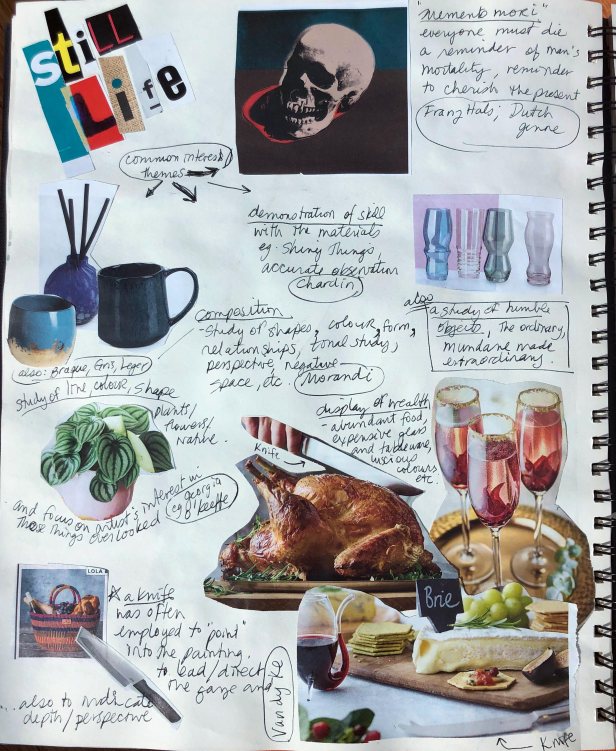 still
Life
"memento mori"
everyone must die
a reminder of man's
mortality, reminder
to cherish the present
Franz Hals; Dutch
genre
common interest
themes
demonstration of skill
with the materials
eg. Shiny Things,
accurate observation
Chardin
also
a study of humble
objects, The ordinary,
mundane made
extraordinary.
composition
- Study of shapes, colour, form,
relationships, tonal study,
perspective, negative
space, etc. Morandi
also: Braque, Gris, Leger
study of line, colour, shape
plants/
flowers/
Nature.
and focus on artist's interest in
These things overlooked
eg georgia
O'Keeffe
display of wealth
- abundant food,
expensive glass
and tableware,
luscious
colours
etc.
Knife
Brie
LOLA
a knife
has often
employed to "point"
into the painting.
to lead/direct
the gaze and
... also to indicate
depth/perspective
Van dyke
Knife